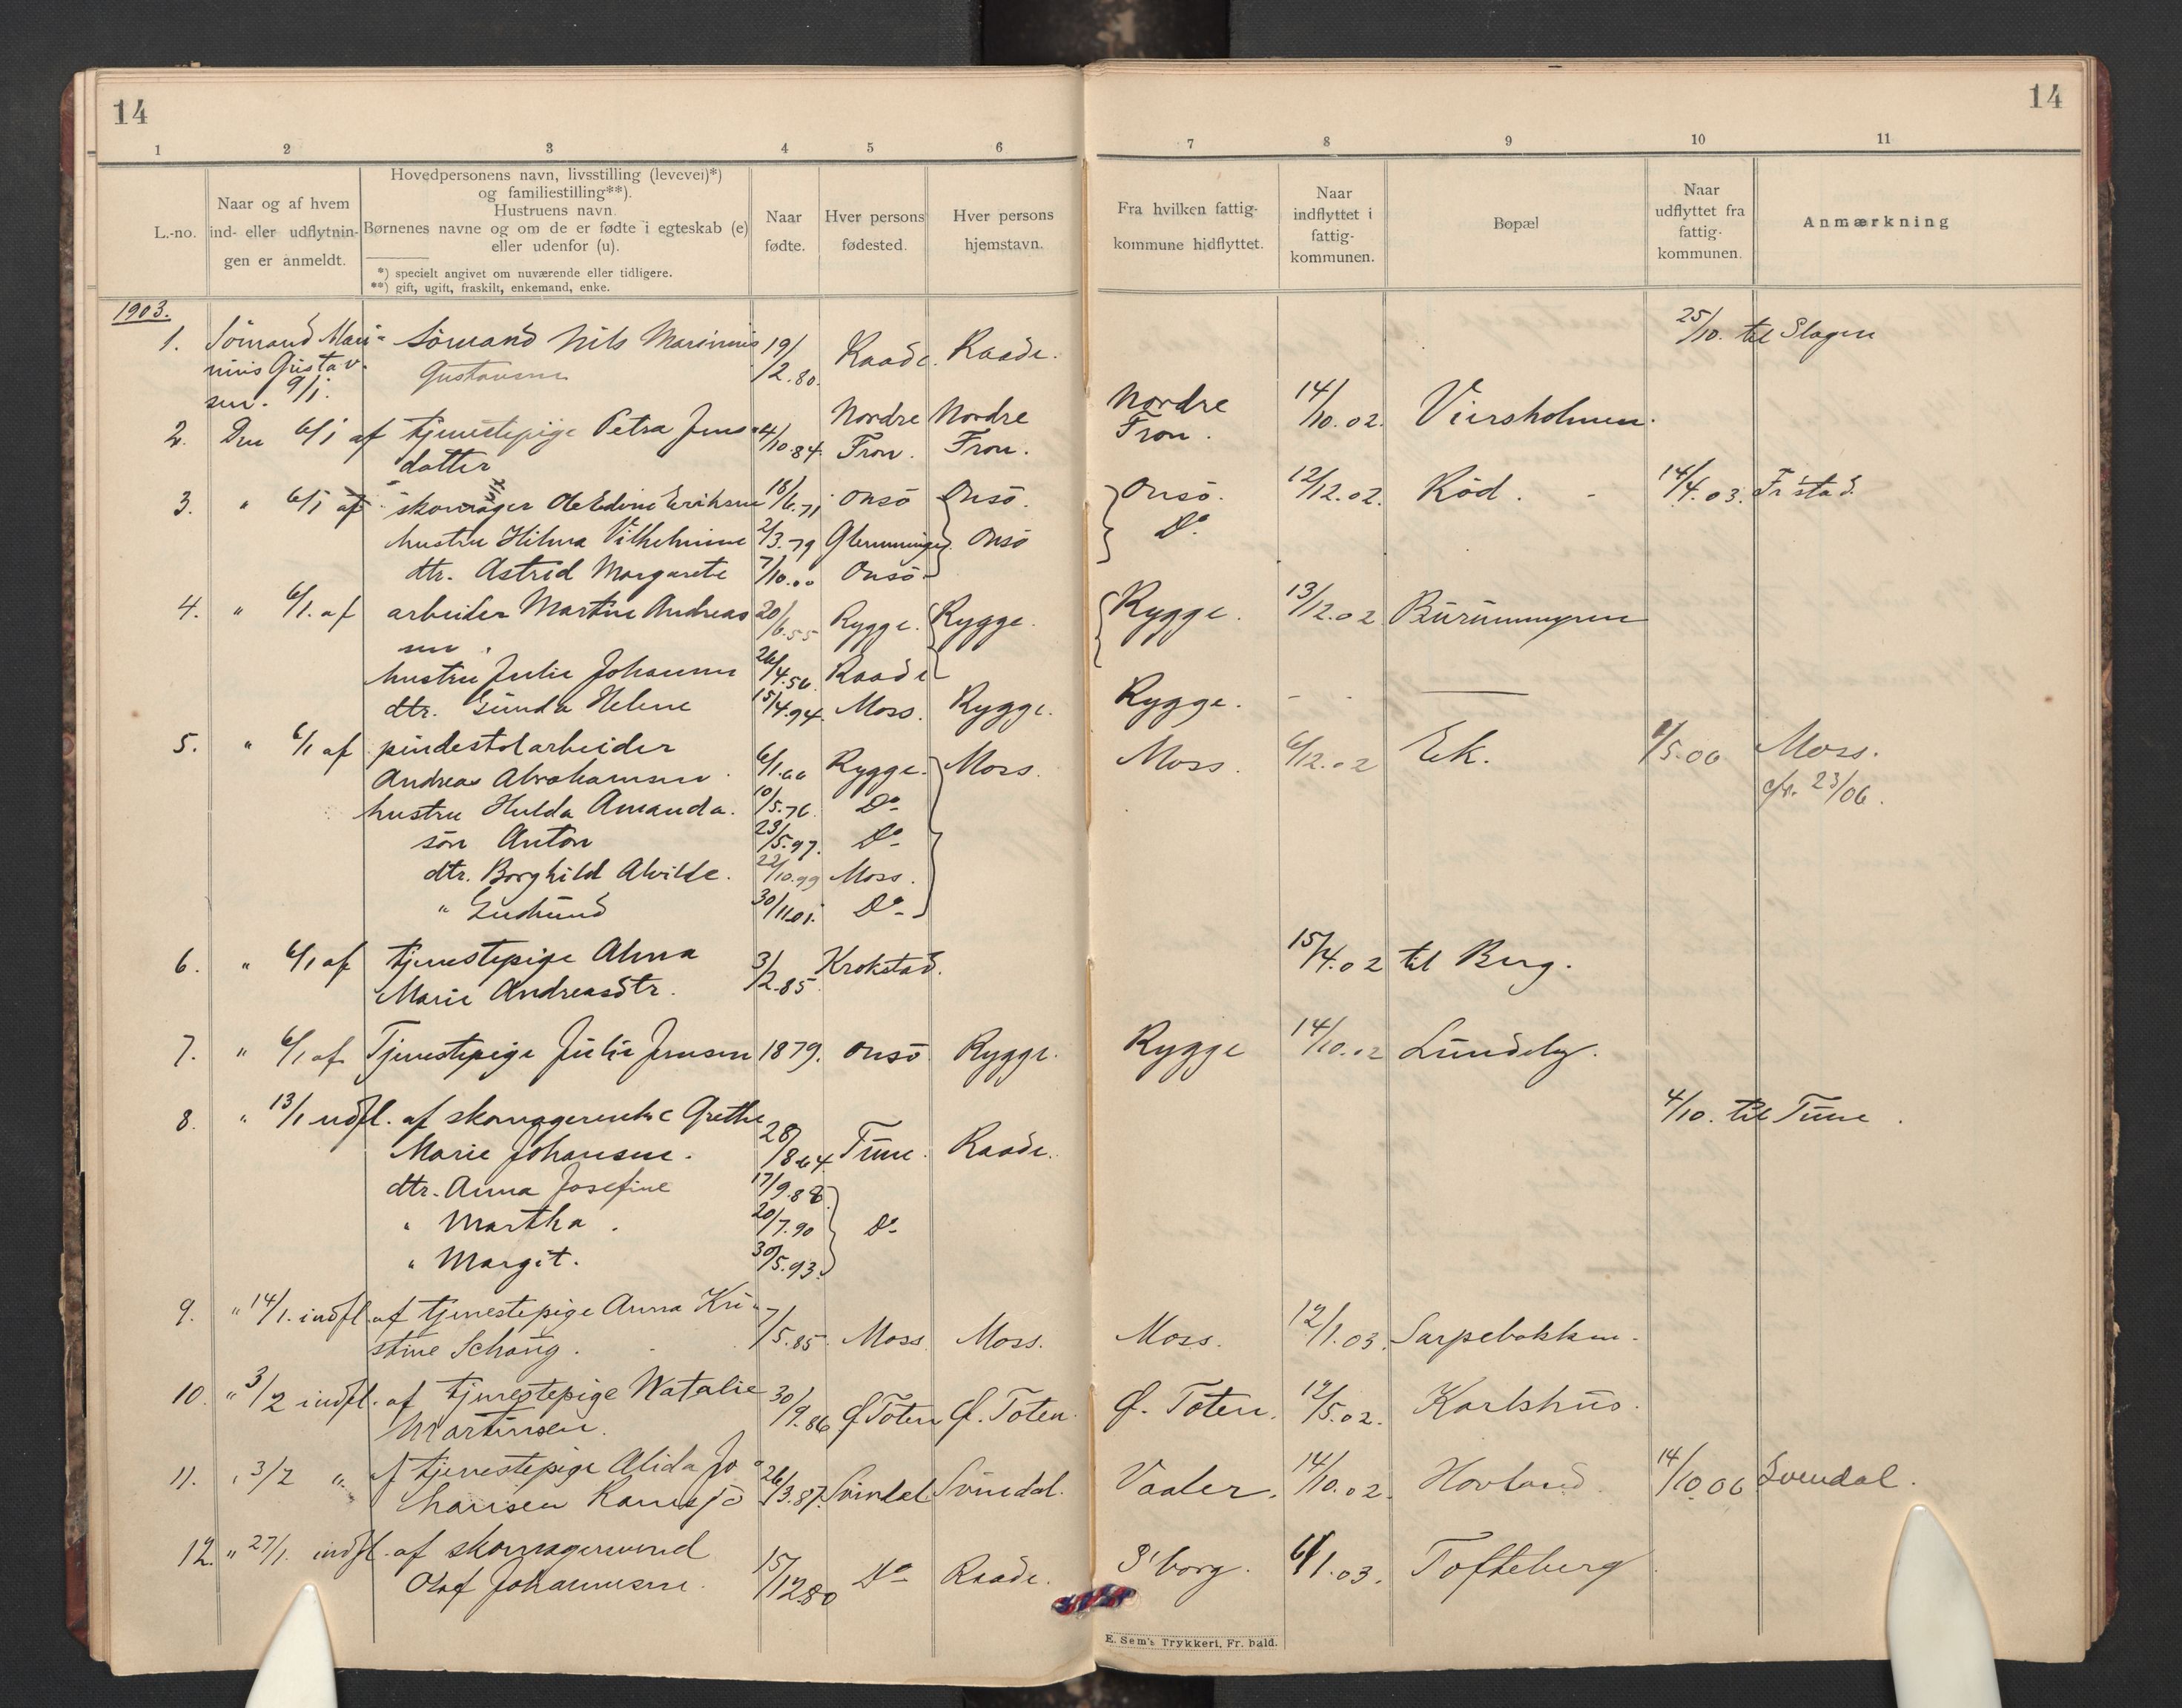 14
14
1 2 3 4 5 6 7 8 9 10 11
L.-no.
Naar og af hvem
ind- eller udflytnin-
gen er anmeldt.
Hovedpersonens navn, livsstilling (levevei)*)
og familiestilling**).
Hustruens navn.
Børnenes navne og om de er fødte i egteskab (e)
eller udenfor (u).
*) specielt angivet om nuværende eller tidligere.
**) gift, ugift, fraskilt, enkemand, enke.
Naar
fødte.
Hver persons
fødested.
Hver persons
hjemstavn.
Fra hvilken fattig-
kommune hidflyttet.
Naar
indflyttet i
fattig-
kommunen.
Bopæl
Naar
udflyttet fra
fattig-
kommunen.
Anmærkning
1903.
1. Sömand Mari- Sömand Nils Marinius 19/2.80. Raade. Raade. 25/10. til Slagen
nius Gustav- Gustavsen
sen. 9/1.
2. Den 6/1 af tjenestepige Petra Jens- 4/10.84. Nordre Nordre Nordre 14/10.02. Viersholmen.
datter Fron. Fron. Fron.
3. " 6/1 af skomager Ole Edvin Eriksen 18/6.71 Onsö Onsö. Onsö. 12/12.02. Röd. 14/4.03. Fr'stad.
hustru Hilma Vilhelmine 2/3.79 Glemminge Onsö Do
dtr. Astrid Margarete 7/10.00 Onsö
4. " 6/1. af arbeider Martin Andreas 20/6.55 Rygge. Rygge. Rygge. 13/12.02
sen.
hustru Julie Johanne 26/4.56. Raade
dtr. Gunda Helene 15/4.94. Moss. Rygge. Rygge. - -
5. " 6/1 af pindestolarbeider
Andreas Abrahamsen. Rygge. Moss. Moss. 6/12.02 Ek. /5.06 Moss.
hustru Hulda Amanda. 10/5.76. Do cfr. 23/06.
sön Anton 23/5.97. Do
dtr. Borghild Alvilde. 22/10.99 Moss.
" Gudrund 30/11.01. Do
6. " 6/1 af tjenestepige Alma 3/2.85. Krokstad. 15/4.02 til Berg.
Marie Andreasdtr.
7. " 6/1 af Tjenestepige Julie Jensen 1879. Onsö Rygge. Rygge 14/10.02 Lundeby.
8. " 13/1 udfl. af skomagerenke Grethe 4/10. til Tune.
Marie Johansen. 28/8.64 Tune. Raade.
dtr. Anna Josefine 17/9.88.
" Martha. 20/7.90 Do
" Margit. 30/5.93.
9. " 14/1. indfl. af tjenestepige Anna Kri- 7/5.85. Moss. Moss. Moss. 12/1.03. Sarpebakken.
stine Schaug.
10. " 3/2 indfl. af tjenestepige Natalie 30/9.86 Ø. Toten Ø. Toten. Ø. Toten. 12/5.02. Karlshus.
Martinsen.
11. " 3/2 " af tjenestepige Alida Jo- 26/3.87. Svindal Svindal. Vaaler. 14/10.02. Hovland. 14/10.06 Svendal.
hansen Ramsjö
12. " 27/1. indfl. af skomagersvend
Olaf Johannesen. 15/12.80 Do Raade. S'borg. 6/1.03. Tofteberg
E. Sem's Trykkeri, Fr. hald.